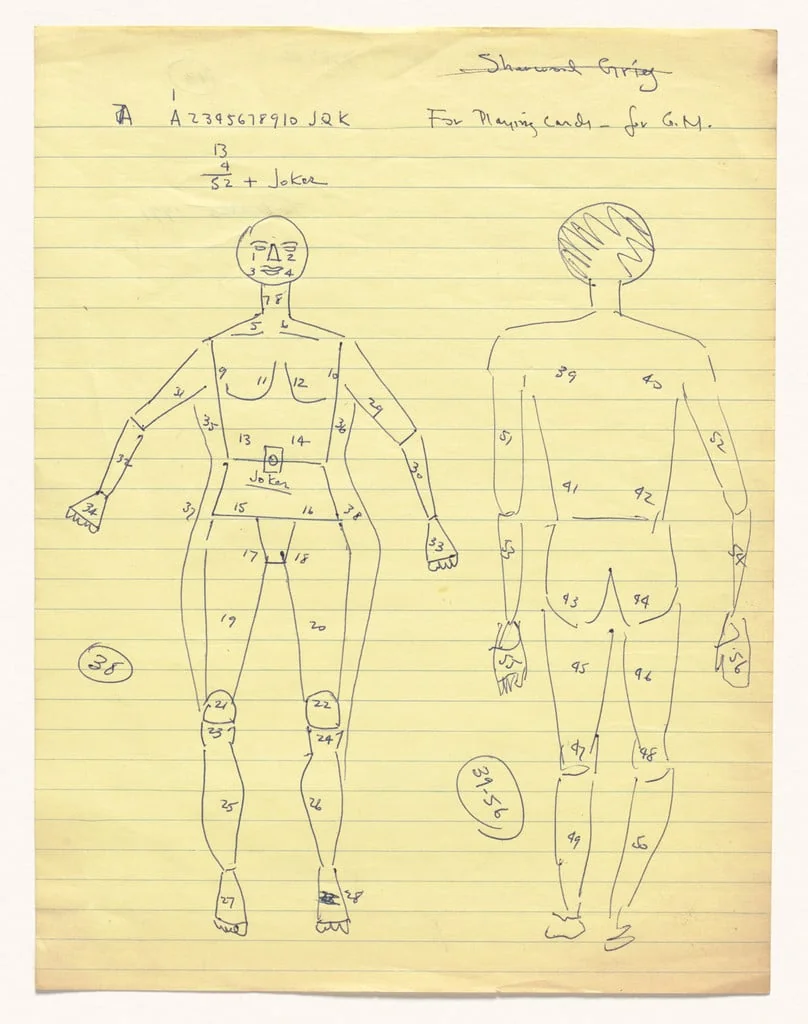 Sherwood Grieg
A 1
A 2 3 4 5 6 7 8 9 10 J Q K
For Playing Cards - for G.M.
13
4
52 + Joker
1 2
3 4
7 8
5 6
9 11 12 10
31 29
35 36
13 14
32 30
Joker
34 37 15 16 38 33
17 18
19 20
38
21 22
23 24
25 26
27 28
39 40
51 52
41 42
53 54
43 44
55 56
45 46
47 48
39-56
49 50